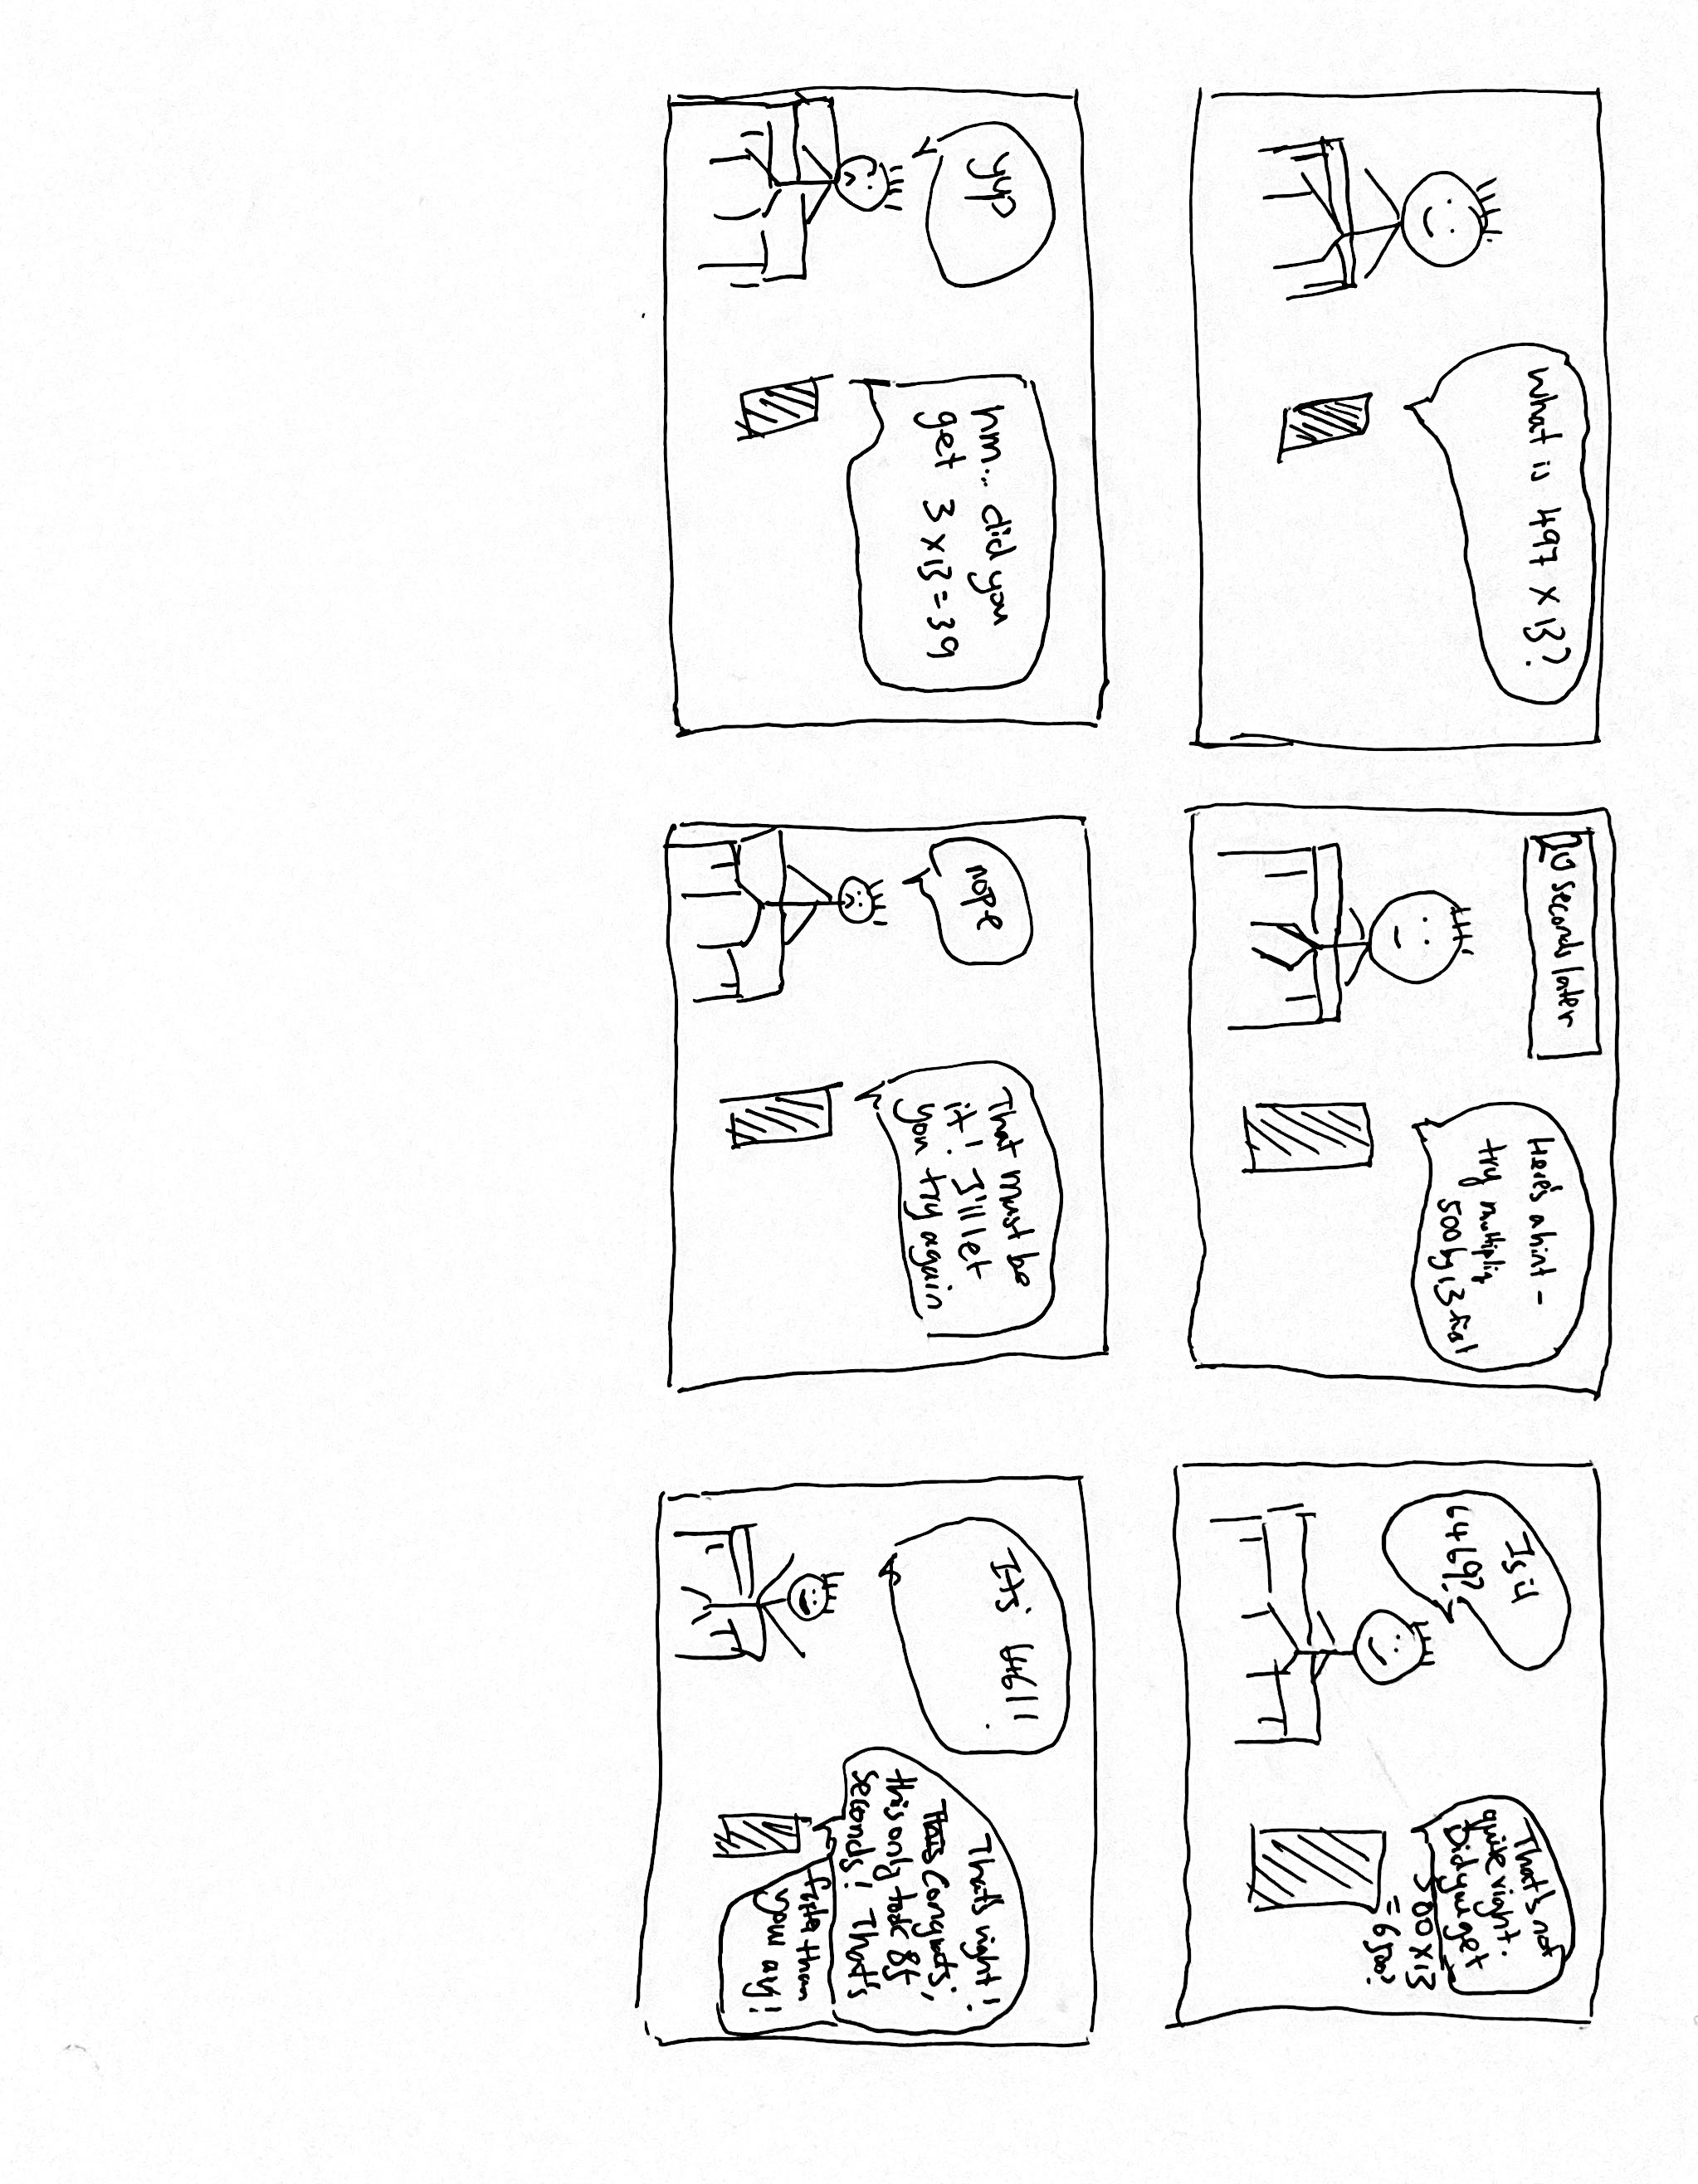 What is 497 x 13?
20 seconds later
Here's a hint -
try multiplying
500 by 13 first
Is it
6469?
That's not
quite right.
Did you get
500 x 13
= 6500?
yup
hm... did you
get 3 x 13 = 39
nope
That must be
it! I'll let
you try again
It's 6461!
That's right!
Congrats,
this only took 85
seconds! That's
faster than
your avg!